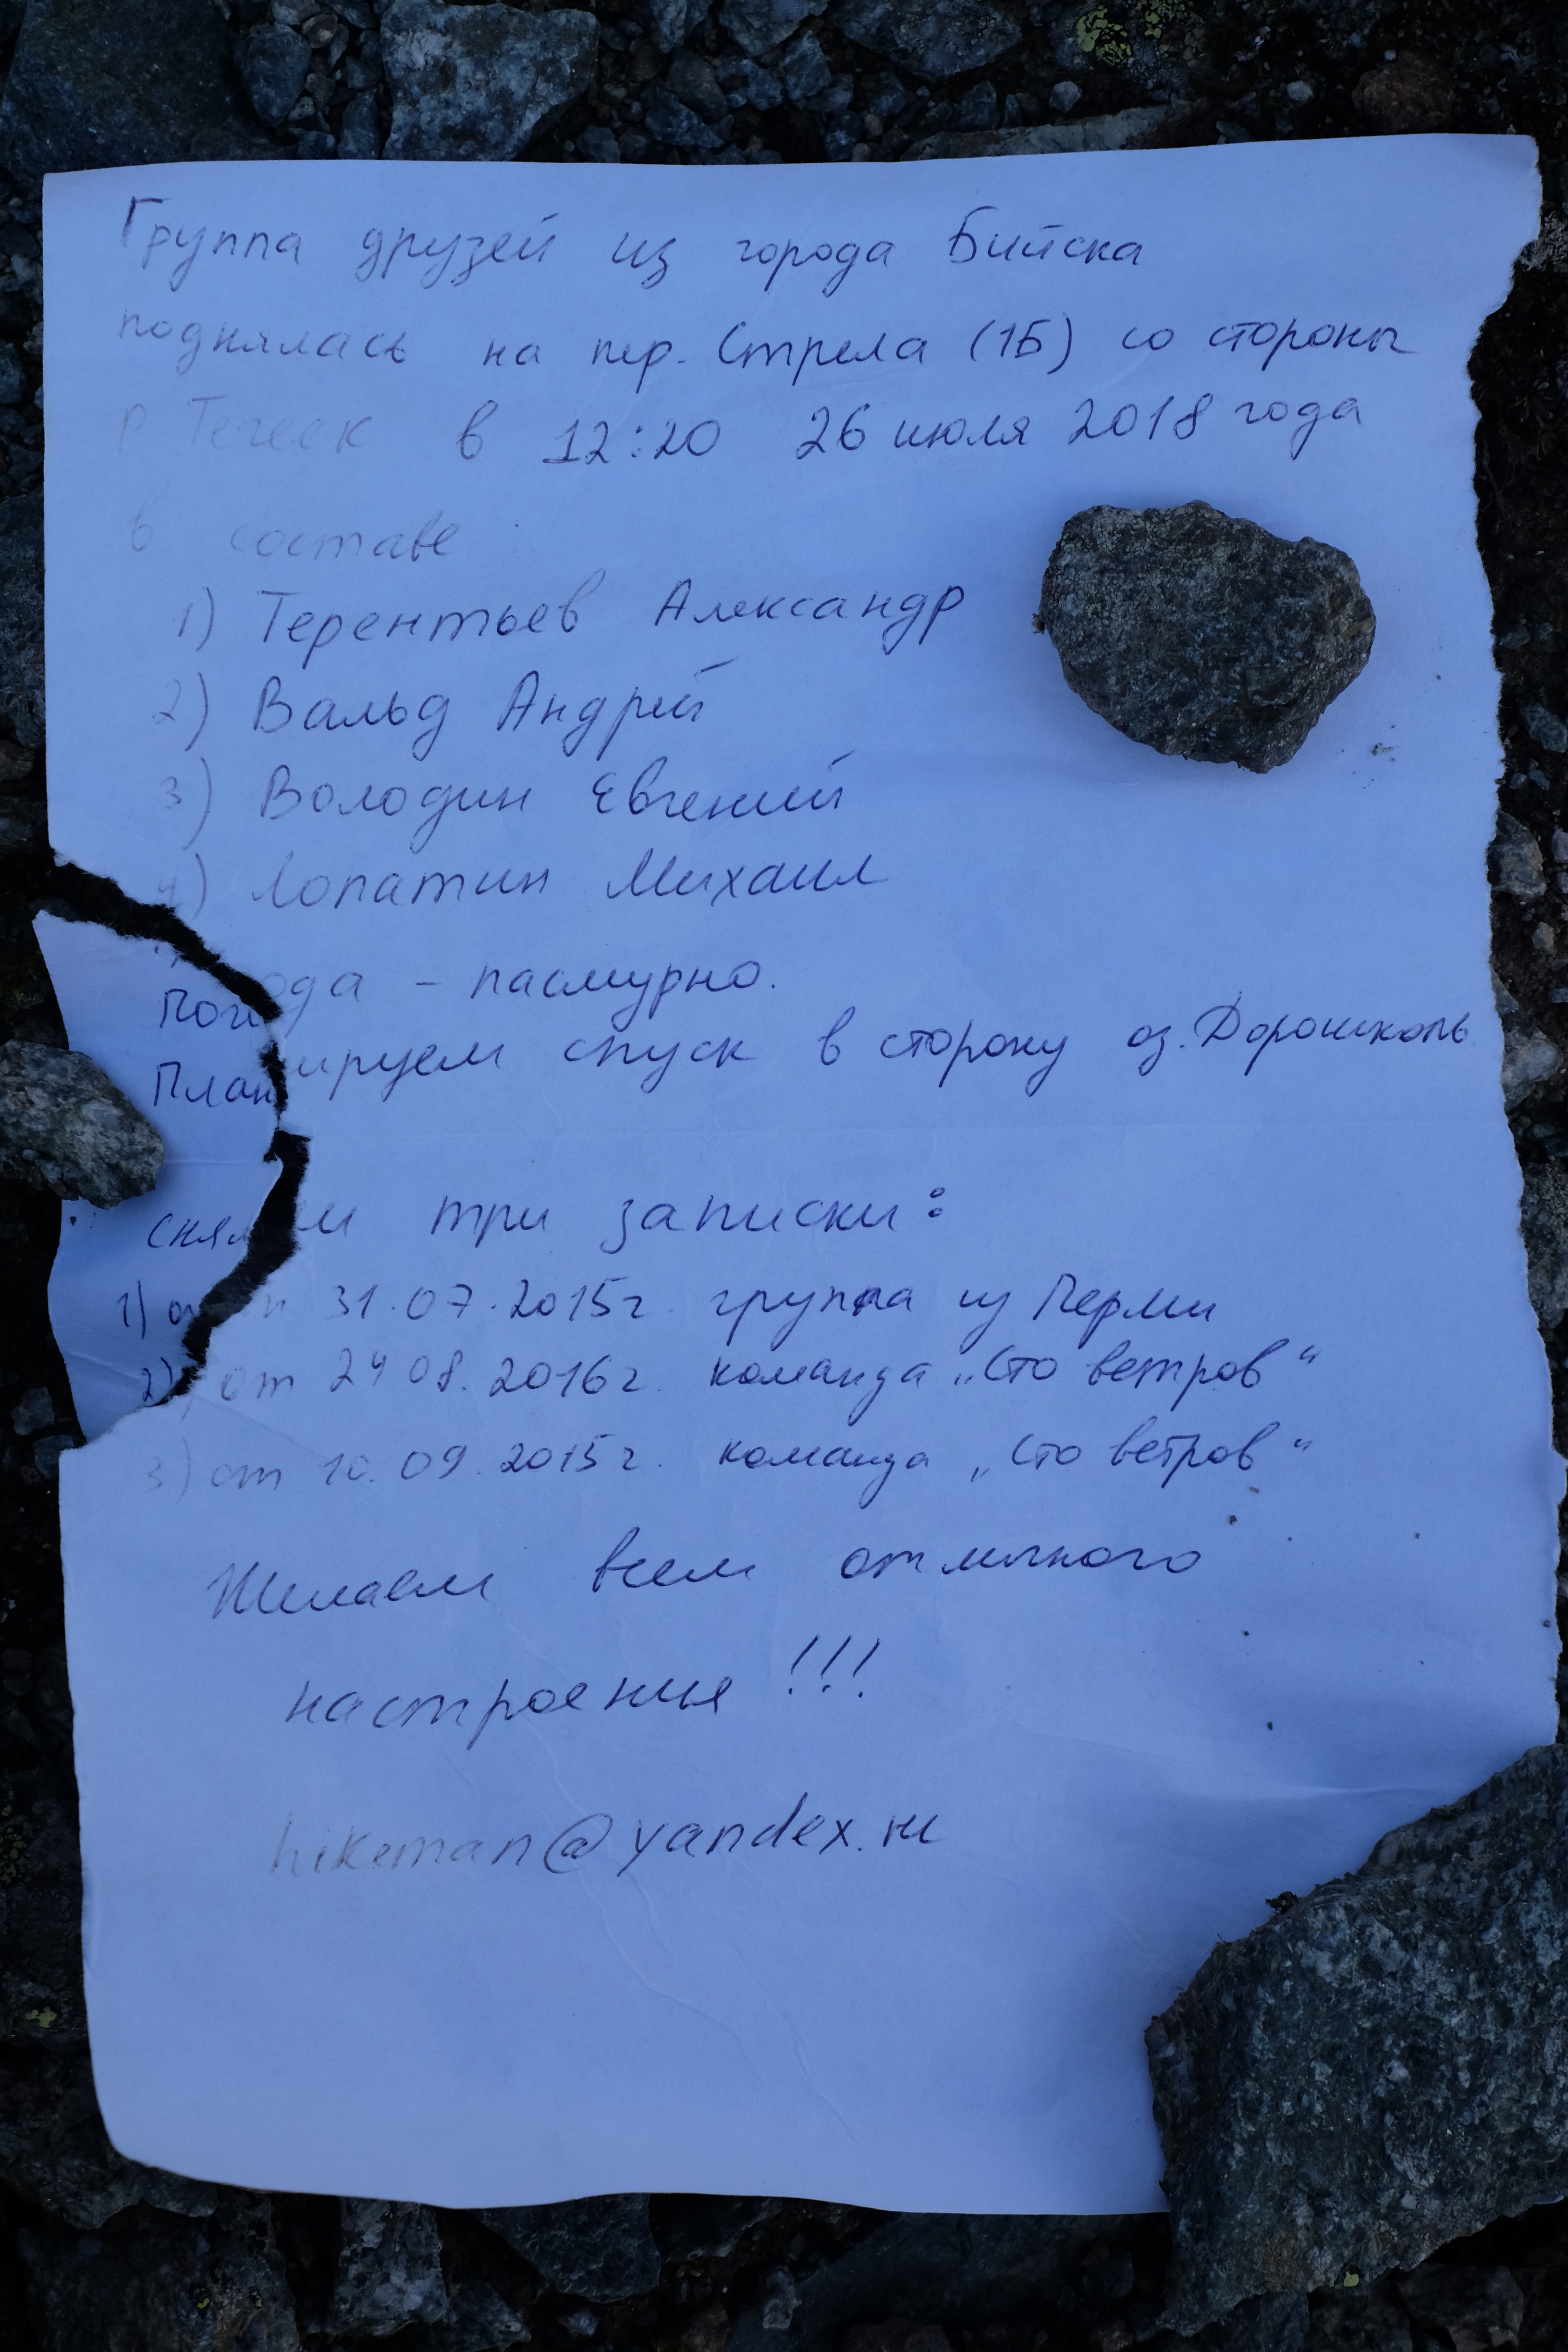 Группа друзей из города Бийска
поднялась на пер. Стрела (1Б) со стороны
р Тегеек в 12:20 26 июля 2018 года
в составе
1) Терентьев Александр
2) Вальд Андрей
3) Володин Евгений
4) Лопатин Михаил
Погода - пасмурно.
Планируем спуск в сторону оз. Дорошколь
сняли три записки:
1) от 31.07.2015г. группа из Перми
2) от 24 08. 2016г. команда „Сто ветров“
3) от 10.09.2015г. команда „Сто ветров“
Желаем всем отличного
настроения!!!
hikeman@yandex.ru